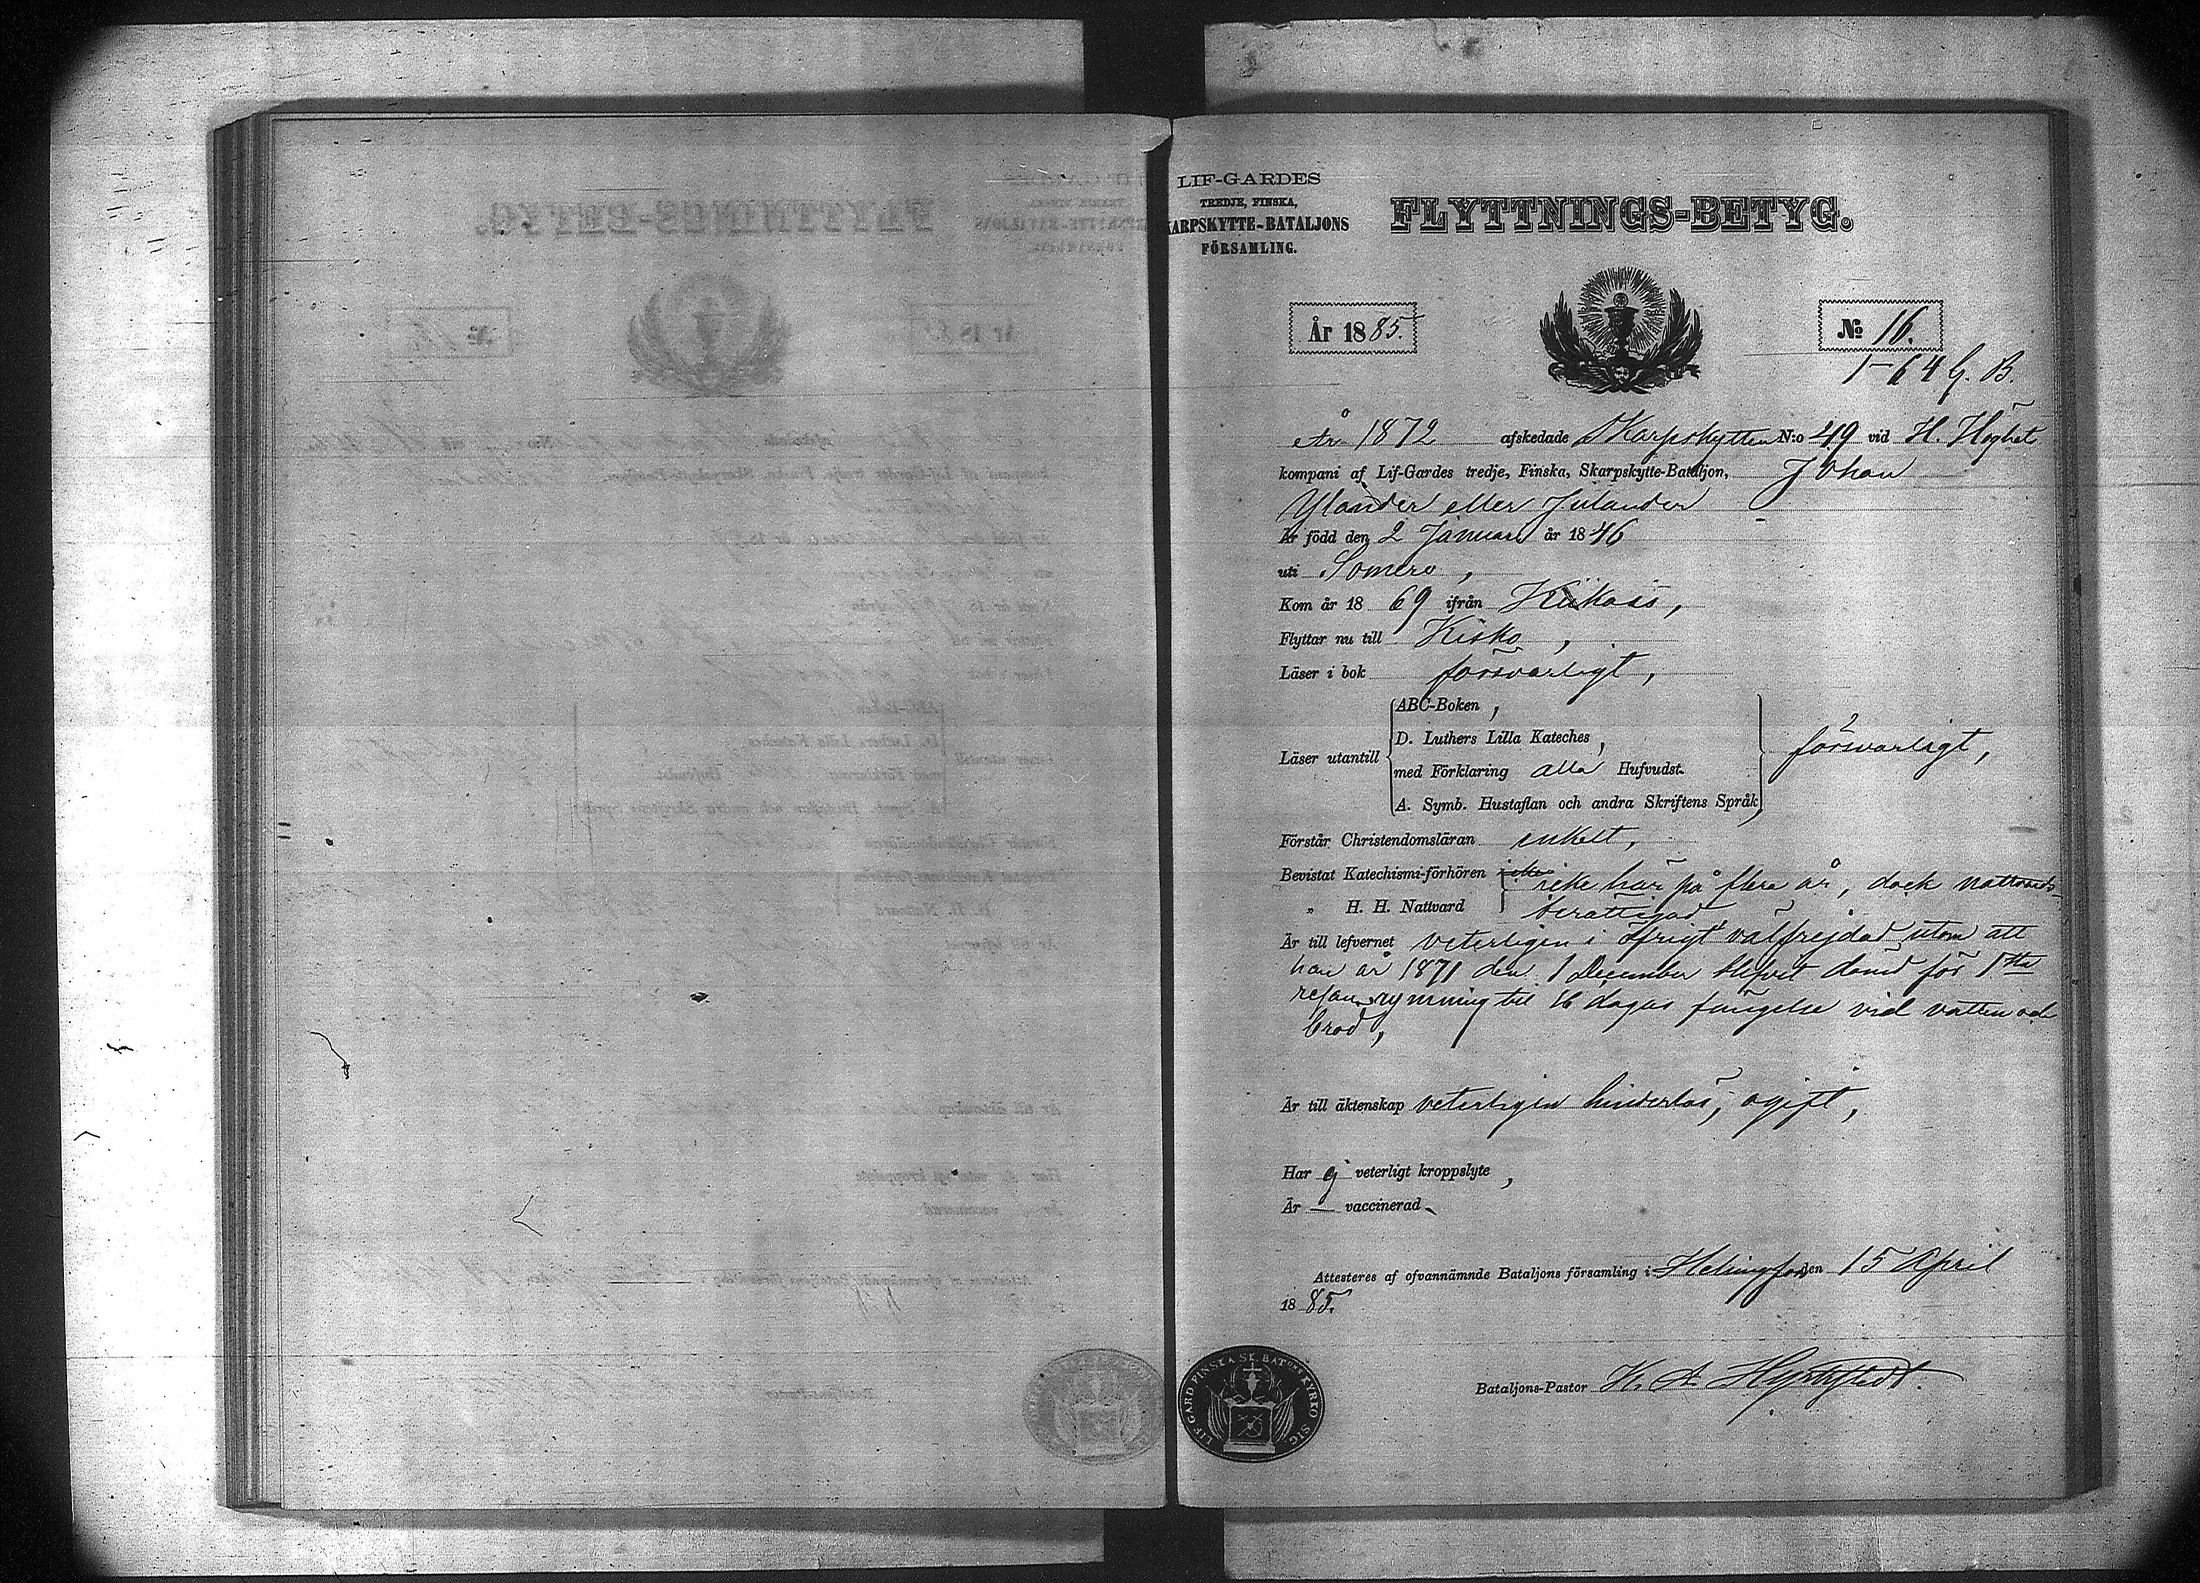 LIF-GARDES
TREDJE, FINSKA,
KARPSKYTTE-BATALJONS
FÖRSAMLING.
FLYTTNINGS-BETYG.
År 1885.
№ 16.
1-64 G. B.
År 1872 afskedade Skarpskytten N:o 49 vid H. Höghet
kompani af Lif-Gardes tredje, Finska, Skarpskytte-Bataljon, Johan
Ylander eller Julander
Är född den 2 Januari år 1846
uti Somero,
Kom år 1869 ifrån Kiikois,
Flyttar nu till Kisko,
Läser i bok försvarligt,
Läser utantill
ABC-Boken,
D. Luthers Lilla Kateches,
med Förklaring alla Hufvudst.
A. Symb. Hustaflan och andra Skriftens Språk
försvarligt,
Förstår Christendomsläran enkelt,
Bevistat Katechismi-förhören icke här på flera år, dock nattvards-
„ H. H. Nattvard berättigad
Är till lefvernet veterligen i öfrigt välfrejdad utom att
han år 1871 den 1 December blifvit dömd för 1sta
resan rymning til 16 dagars fängelse vid vatten och
bröd,
Är till äktenskap veterligen hinderlös, ogift,
Har ej veterligt kroppslyte,
Är — vaccinerad
Attesteres af ofvannämnde Bataljons församling i Helsingfors den 15 April
1885.
Bataljons-Pastor K. A.
LIF GARD FINSKA SK. BATONS KYRKO SIG